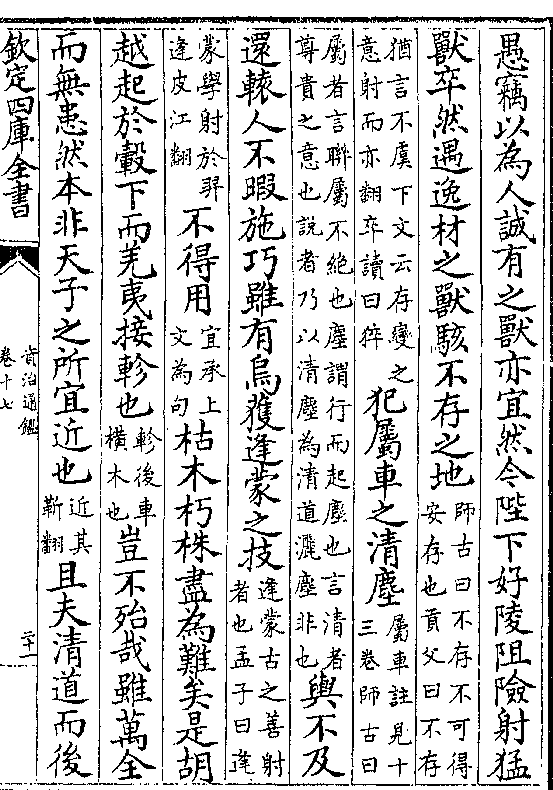 愚竊以為人誠有之獸亦宜然今陛下好陵阻險射猛
獸卒然遇逸材之獸駭不存之地師古曰不存不可得安存也貢父曰不存
猶言不虞下文云存變之意射而亦翻卒讀曰猝犯屬車之清塵屬車註見十三卷師古曰
屬者言聯屬不絶也塵謂行而起塵也言清者尊貴之意也説者乃以清塵為清道灑塵非也輿不及
還轅人不暇施巧雖有烏獲逢蒙之技逢蒙古之善射者也孟子曰逄
蒙學射於羿逄皮江翻不得用宜承上文為句枯木朽株盡為難矣是胡
越起於轂下而羌夷接軫也軫後車橫木也豈不殆哉雖萬全
而無患然本非天子之所宜近也近其靳翻且夫清道而後
欽定四庫全書
資治通鑑
卷十七
二十